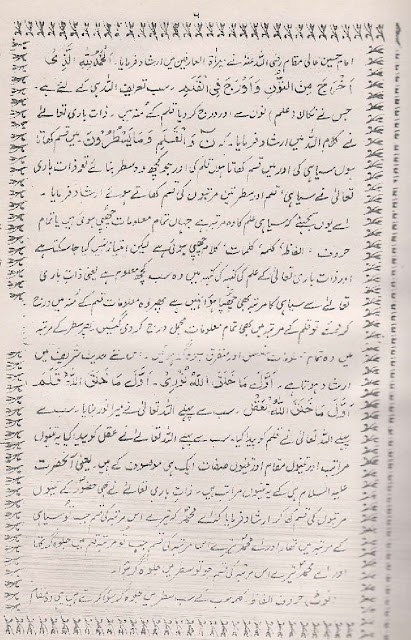 ۶
امام حسین عالی مقام رضی اللہ عنہ نے مرأۃ العارفین میں ارشاد فرمایا۔ اَلْحَمْدُ لِلّٰہِ الَّذِیْ
اَخْرَجَ مِنَ النُّوْنِ وَاَدْرَجَ فِی الْقَلَمِ سب تعریف اللہ ہی کے لئے ہے۔
جس نے نکالا (علم) نون سے اور درج کر دیا قلم کے منہ میں۔ ذات باری تعالیٰ
نے کلام اللہ میں ارشاد فرمایا۔ کہ نٓ وَالْقَلَمِ وَمَا یَسْطُرُوْنَ میں قسم کھاتا
ہوں سیاہی کی اور میں قسم کھاتا ہوں قلم کی اور جو کچھ وہ سطر بنائے تو ذات باری
تعالیٰ نے سیاہی، قلم اور سطر تین مرتبوں کی قسم کھاتے ہوئے ارشاد فرمایا۔
اسے یوں سمجھئے کہ سیاہی علم کا وہ مرتبہ ہے جہاں تمام معلومات چھپی ہوئی ہیں یا تمام
حروف۔ الفاظ، کلمہ، کلمات، کلام چھپی ہوئی ہے لیکن امتیاز نہیں کیا جا سکتا ہے
اور ذات باری تعالیٰ کے علم کی میں وہ سب کچھ معلوم ہے یعنی ذات باری
تعالیٰ سے سیاہی کا مرتبہ بھی چھپا ہوا نہیں ہے پھر وہ معلومات قلم کے منہ میں درج
کر دیئے تو قلم کے مرتبہ میں بھی تمام معلومات مجمل درج کر دی گئیں پھر سطر کے مرتبہ
میں وہ تمام اور متفرق ہو اس لئے حدیث شریف میں
ارشاد ہوتا ہے۔ اَوَّلُ مَا خَلَقَ اللّٰہُ نُوْرِیْ۔ اَوَّلُ مَا خَلَقَ اللّٰہُ قَلَمْ
اَوَّلُ مَا خَلَقَ اللّٰہُ عَقْلِیْ۔ سب سے پہلے اللہ تعالیٰ نے میرا نور بنایا۔ سب سے
پہلے اللہ تعالیٰ نے قلم کو پیدا کیا۔ سب سے پہلے اللہ تعالیٰ نے عقل کو پیدا کیا یہ تینوں
مراتب اور تینوں مقام اور تینوں صفات ایک ہی موصوف کے ہیں۔ یعنی آنحضرت
علیہ السلام ہی کے یہ تینوں مراتب ہیں۔ ذات باری تعالیٰ نے بھی حضور کے تینوں
مرتبوں کی قسم کھا کر ارشاد فرمایا کہ اے محمد تیرے اس مرتبہ کی قسم جب تو سیاہی
کے مرتبہ میں تھا۔ اور اے محمد تیرے اس مرتبہ کی قسم جب تو مرتبہ قلم میں جلوہ گر تھا
اور اے محمد تیرے اس مرتبہ کی قسم جو تو سطر میں جلوہ گر ہوا۔
نوٹ: حروف الفاظ کلمہ سب کے سب سطر میں جلوہ گر ہوا کرتے ہیں